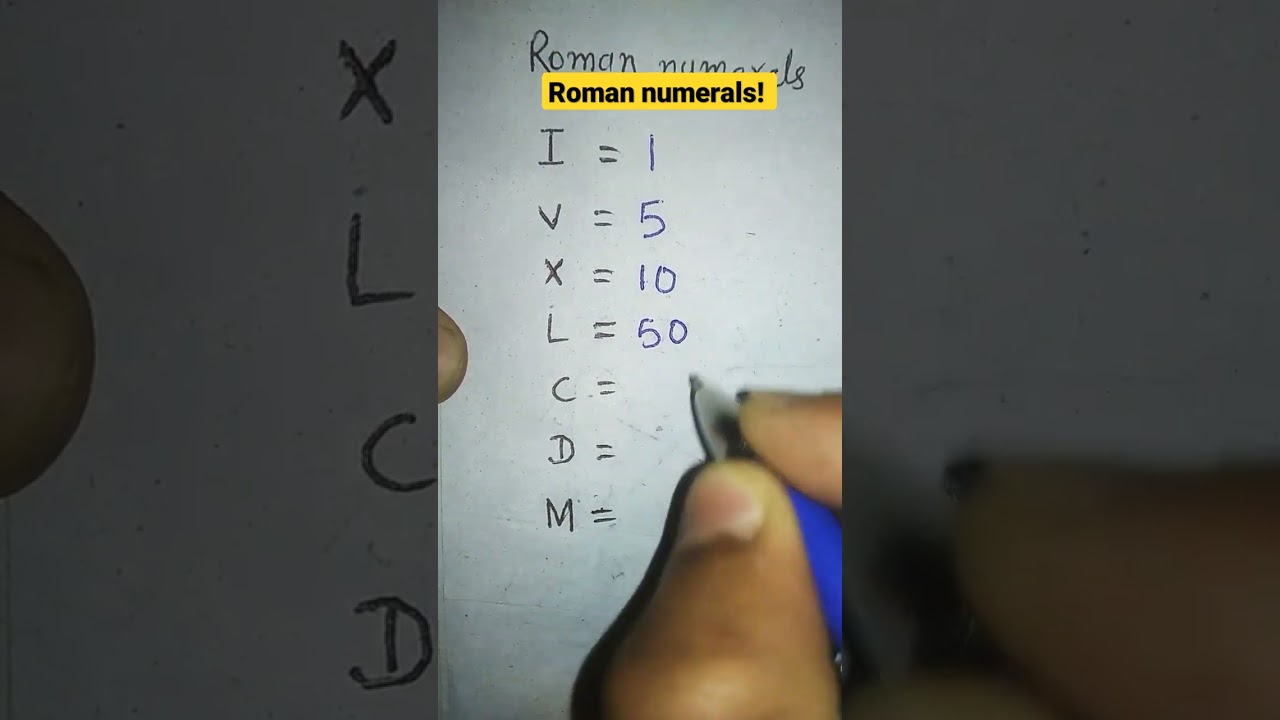 Roman numerals
Roman numerals!
I = 1
V = 5
X = 10
L = 50
C =
D =
M =
X
L
C
D